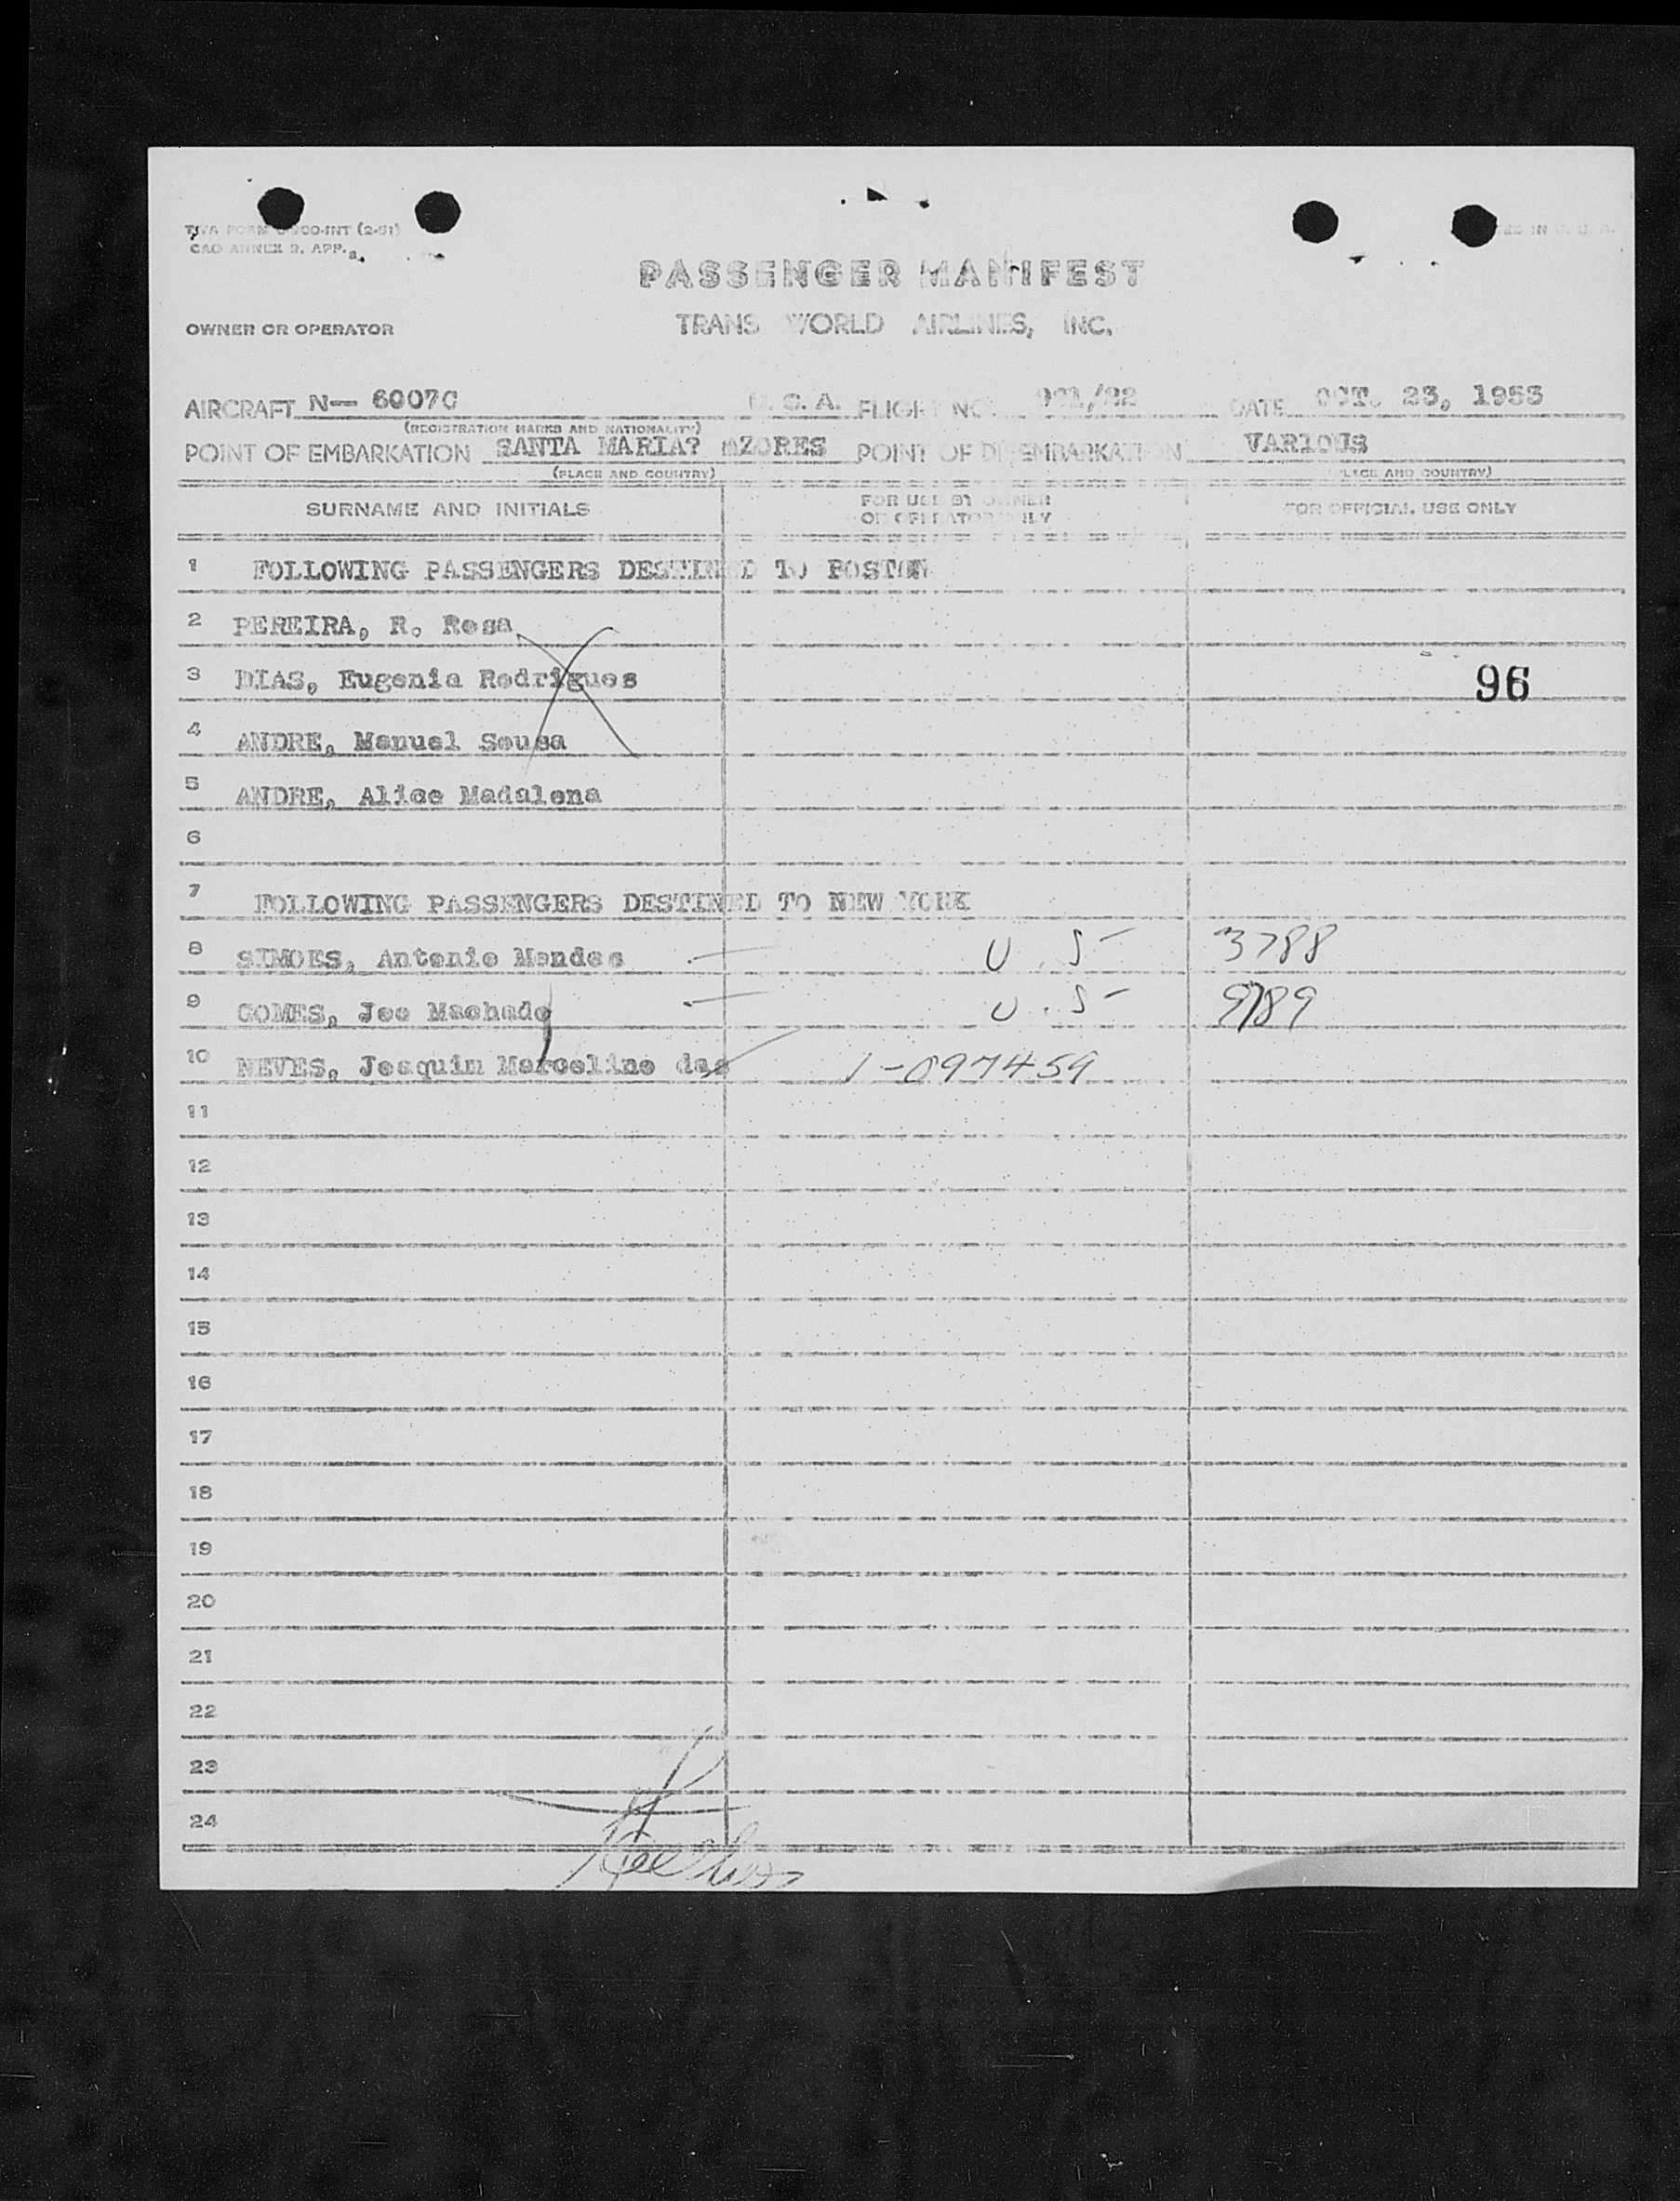 TWA FORM INT (2-51)
CAO ANNEX 9, APP.
PASSENGER MANIFEST
OWNER OR OPERATOR TRANS WORLD AIRLINES, INC.
AIRCRAFT N— 6007C U. S. A. FLIGHT NO. 901/22 DATE OCT. 23, 1953
(REGISTRATION MARKS AND NATIONALITY)
POINT OF EMBARKATION SANTA MARIA? AZORES POINT OF DISEMBARKATION VARIOUS
(PLACE AND COUNTRY) (PLACE AND COUNTRY)
SURNAME AND INITIALS FOR USE BY OWNER OR OPERATOR ONLY FOR OFFICIAL USE ONLY
1 FOLLOWING PASSENGERS DESTINED TO BOSTON
2 PEREIRA, R. Rosa
3 DIAS, Eugenia Rodrigues 96
4 ANDRE, Manuel Sousa
5 ANDRE, Alice Madalena
6
7 FOLLOWING PASSENGERS DESTINED TO NEW YORK
8 SIMOES, Antonio Mendes — U.S— 3788
9 GOMES, Joe Machado — U.S— 9789
10 NEVES, Joaquim Marcelino das 1-097459
11
12
13
14
15
16
17
18
19
20
21
22
23
24